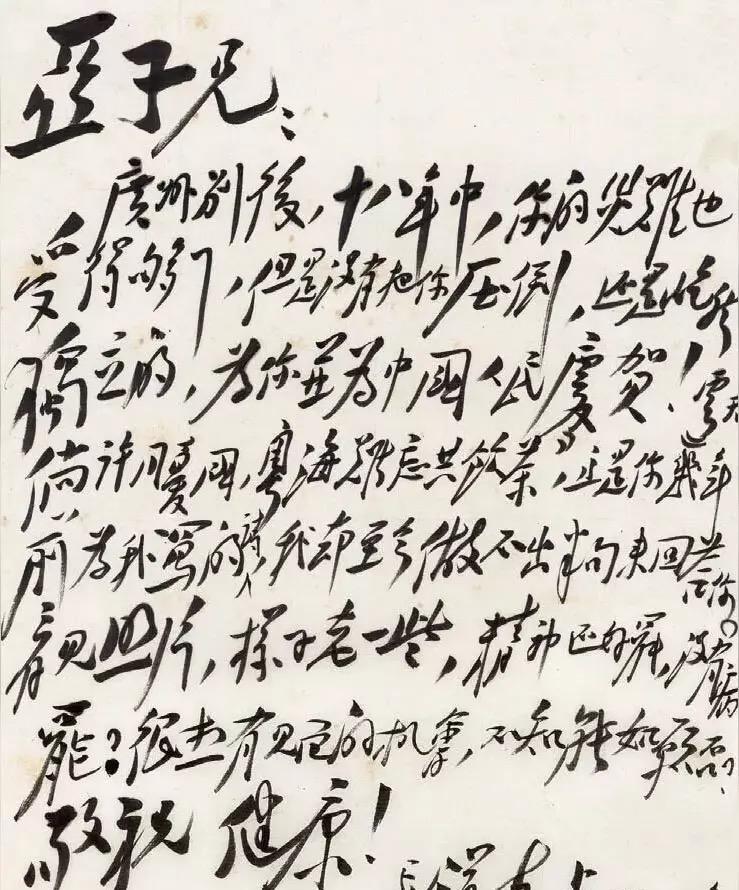 亚子兄:
广州别后,十八年中,你的灾难也
受得够了,但是没有把你压倒,还是屹然
独立的,为你并为中國人民慶贺!“云天
倘许同憂國,粤海難忘共飲茶”,这是你幾年
前为我寫的诗,我却至今做不出半句来回答你。
看见照片,样子老一些,精神还好罢,没有病
罷?很想有见面的机會,不知能如願否?
敬祝 健康!
毛澤東上